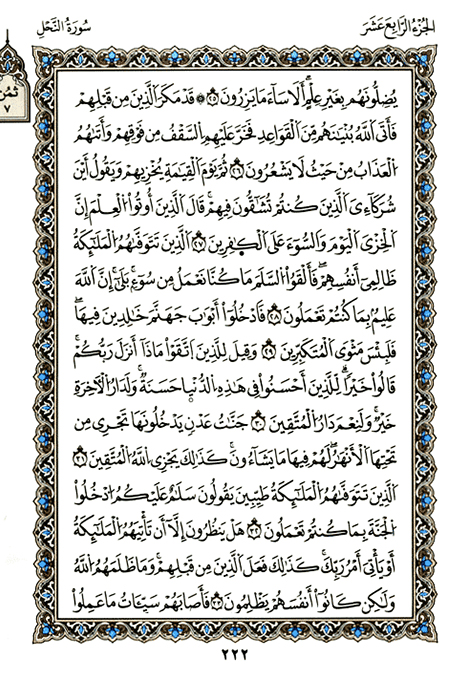 الجُزْءُ الرَّابِعَ عَشَرَ
سُورَةُ النَّحْلِ
ثُمُن
٧
يُضِلُّونَهُم بِغَيْرِ عِلْمٍ أَلَا سَاءَ مَا يَزِرُونَ ٢٥ قَدْ مَكَرَ الَّذِينَ مِن قَبْلِهِمْ
فَأَتَى اللَّهُ بُنْيَانَهُم مِّنَ الْقَوَاعِدِ فَخَرَّ عَلَيْهِمُ السَّقْفُ مِن فَوْقِهِمْ وَأَتَاهُمُ
الْعَذَابُ مِنْ حَيْثُ لَا يَشْعُرُونَ ٢٦ ثُمَّ يَوْمَ الْقِيَامَةِ يُخْزِيهِمْ وَيَقُولُ أَيْنَ
شُرَكَاءِيَ الَّذِينَ كُنتُمْ تُشَاقُّونَ فِيهِمْ قَالَ الَّذِينَ أُوتُوا الْعِلْمَ إِنَّ
الْخِزْيَ الْيَوْمَ وَالسُّوءَ عَلَى الْكَافِرِينَ ٢٧ الَّذِينَ تَتَوَفَّاهُمُ الْمَلَائِكَةُ
ظَالِمِي أَنفُسِهِمْ فَأَلْقَوُا السَّلَمَ مَا كُنَّا نَعْمَلُ مِن سُوءٍ بَلَى إِنَّ اللَّهَ
عَلِيمٌ بِمَا كُنتُمْ تَعْمَلُونَ ٢٨ فَادْخُلُوا أَبْوَابَ جَهَنَّمَ خَالِدِينَ فِيهَا
فَلَبِئْسَ مَثْوَى الْمُتَكَبِّرِينَ ٢٩ وَقِيلَ لِلَّذِينَ اتَّقَوْا مَاذَا أَنزَلَ رَبُّكُمْ
قَالُوا خَيْرًا لِّلَّذِينَ أَحْسَنُوا فِي هَذِهِ الدُّنْيَا حَسَنَةٌ وَلَدَارُ الْآخِرَةِ
خَيْرٌ وَلَنِعْمَ دَارُ الْمُتَّقِينَ ٣٠ جَنَّاتُ عَدْنٍ يَدْخُلُونَهَا تَجْرِي مِن
تَحْتِهَا الْأَنْهَارُ لَهُمْ فِيهَا مَا يَشَاءُونَ كَذَلِكَ يَجْزِي اللَّهُ الْمُتَّقِينَ ٣١
الَّذِينَ تَتَوَفَّاهُمُ الْمَلَائِكَةُ طَيِّبِينَ يَقُولُونَ سَلَامٌ عَلَيْكُمُ ادْخُلُوا
الْجَنَّةَ بِمَا كُنتُمْ تَعْمَلُونَ ٣٢ هَلْ يَنظُرُونَ إِلَّا أَن تَأْتِيَهُمُ الْمَلَائِكَةُ
أَوْ يَأْتِيَ أَمْرُ رَبِّكَ كَذَلِكَ فَعَلَ الَّذِينَ مِن قَبْلِهِمْ وَمَا ظَلَمَهُمُ اللَّهُ
وَلَكِن كَانُوا أَنفُسَهُمْ يَظْلِمُونَ ٣٣ فَأَصَابَهُمْ سَيِّئَاتُ مَا عَمِلُوا
٢٢٢